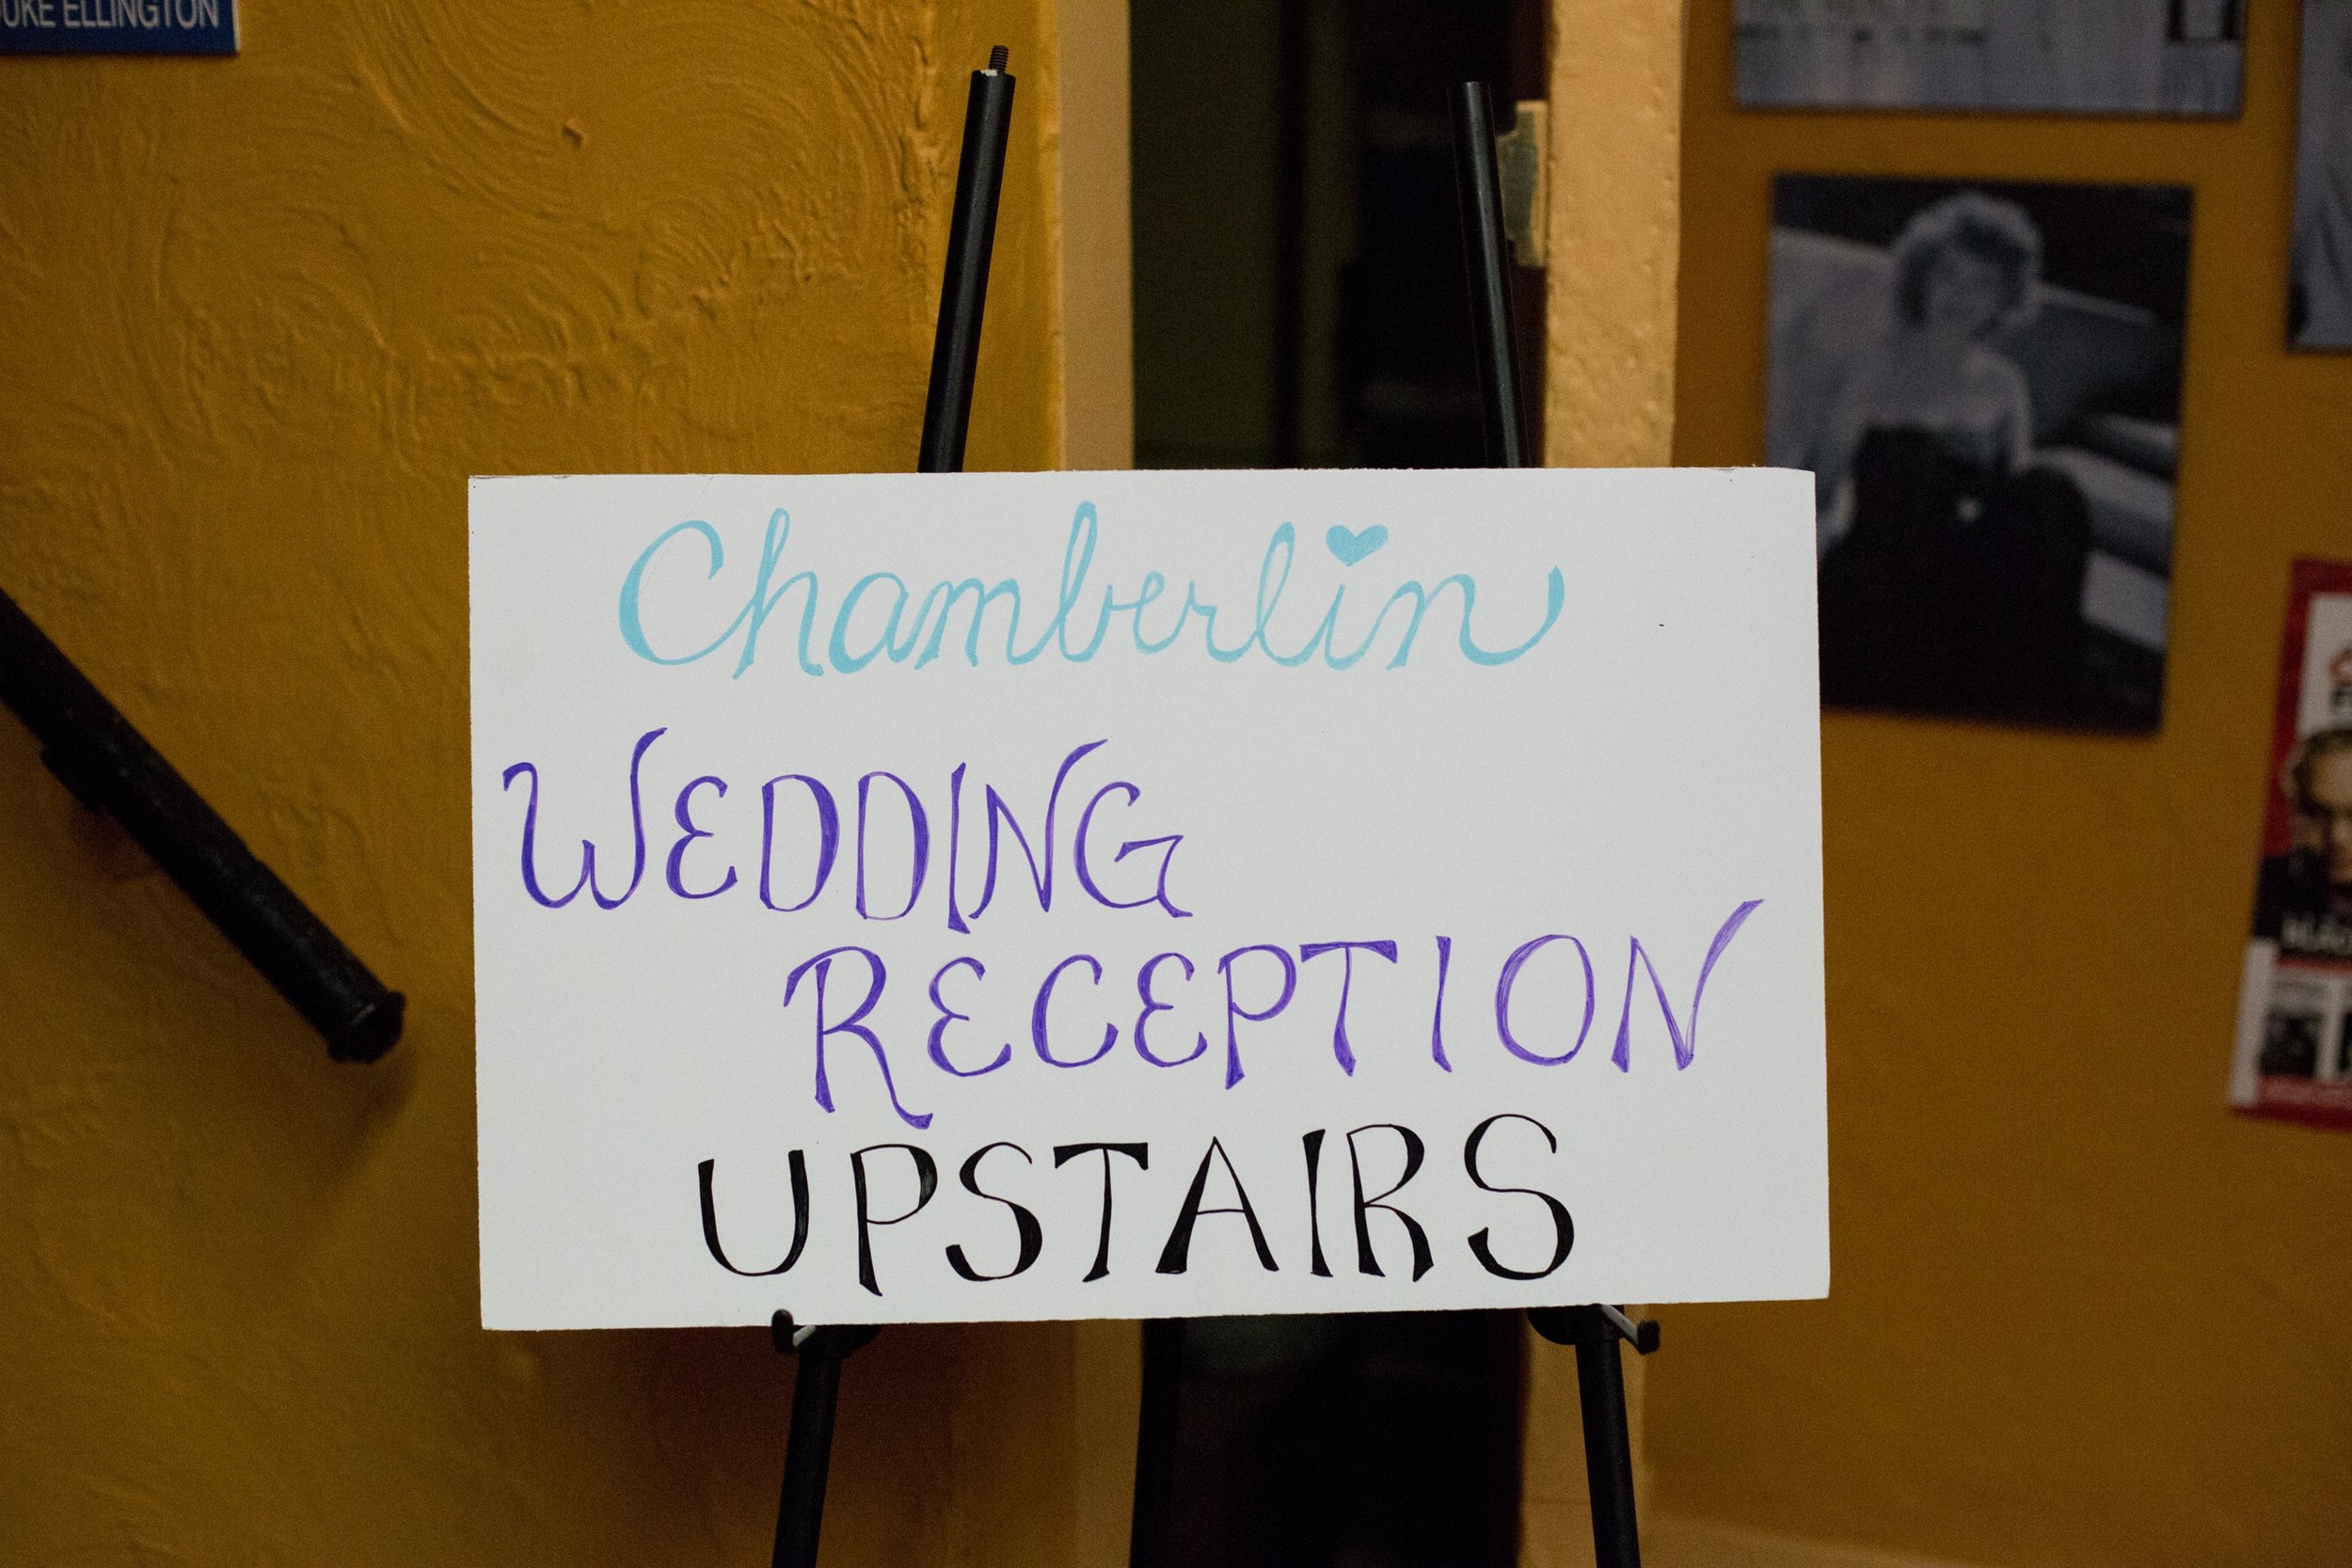 DUKE ELLINGTON
Chamberlin
WEDDING
RECEPTION
UPSTAIRS